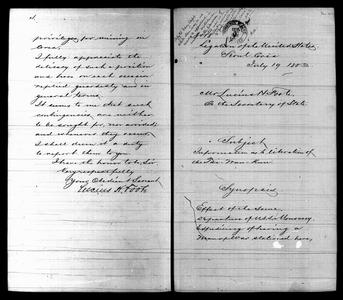 privileges, for mining in
Corea,
I fully appreciate the
delicacy of such a position
and have on each occasion
replied guardedly and in
general terms,
It seems to me that such
contingencies, are neither
to be sought for, nor avoided;
and whenever they occur,
I shall deem it a duty
to report them to you
I have the honor to be, Sir,
Very respectfully
Your Obedient Servant
Lucius H. Foote
Legation of the United States,
Seoul Corea
July 19, 188
Mr Lucius H. Foote
To the Secretary of State
Subject
Information as to liberation of
the Tai-Wan-Kun
Synopsis
Effect of the same,
Departure of Ubbe Monocacy
Expediency of having a
Man of War stationed here,